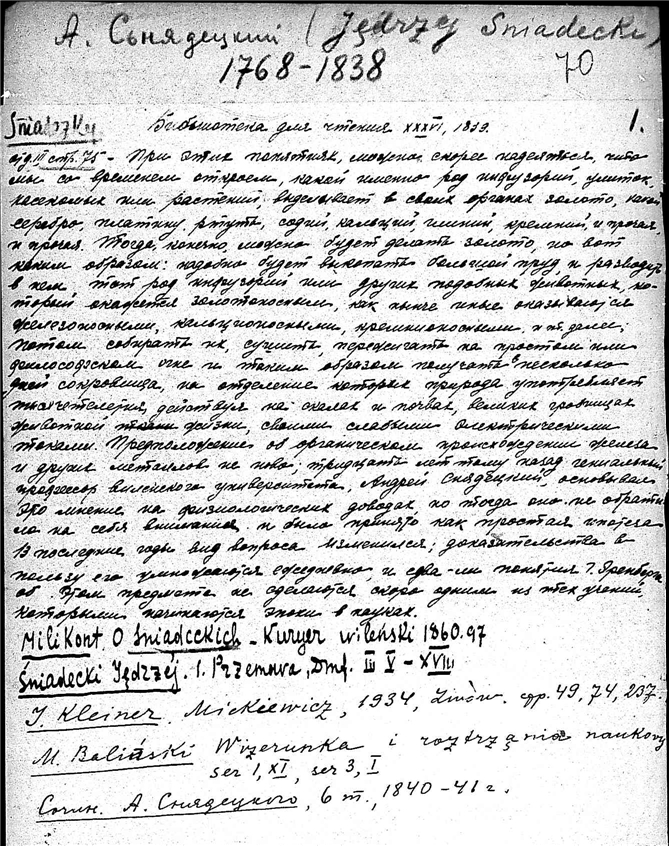 А. Сьнядецкий (Jędrzej Śniadecki)
1768-1838 70
Śniadzky Библиотека для чтения XXXVI, 1839. 1.
отд. III стр. 75 - При этих понятиях, можно скорее надеяться, что
мы со временем откроем, какой именно род инфузорий, улиток,
насекомых или растений, выделывает в своих органах золото, какой
серебро, платину, ртуть, содий, кальций, кремний, и прочая
и прочая. Тогда, конечно, можно будет делать золото, но вот
каким образом: надобно будет выкопать большой пруд и разводить
в нем тот род инфузорий или других подобных животных, ко-
торый окажется золотоносным, как ныне иные оказываются
железоносными, кальционосными, кремнионосными и т. далее;
потом собирать их, сушить, пережигать на простом или
философском огне и таким образом получать в несколько
дней сокровища, на отделение которых природа употребляет
тысячелетия, действуя на скалах и почвах, великих гробницах
животной жизни, своими слабыми электрическими
токами. Предположение об органическом происхождении железа
и других металлов не ново; тридцать лет тому назад гениальный
профессор виленского университета, Андрей Снядецкий основывал
это мнение на физиологических доводах, но тогда оно не обрати-
ло на себя внимания и было принято как простая ипотеза
В последние годы вид вопроса изменился; доказательства в
пользу его умножаются ежедневно, и едва-ли понятия г. Эренберга
об этом предмете не сделаются скоро одним из тех учений,
которыми начинаются эпохи в науках.
Milikont O Śniadeckich - Kuryer wileński 1860.97
Śniadecki Jędrzéj. 1. Przemova, Dmf. III V - XVIII
J. Kleiner. Mickiewicz, 1934, Lwów. стр. 49, 74, 237.
M. Baliński Wizerunka i roztrząsania naukowy
ser 1, XI, ser 3, I
Сочин. А. Снядецкого, 6 т., 1840-41 г.